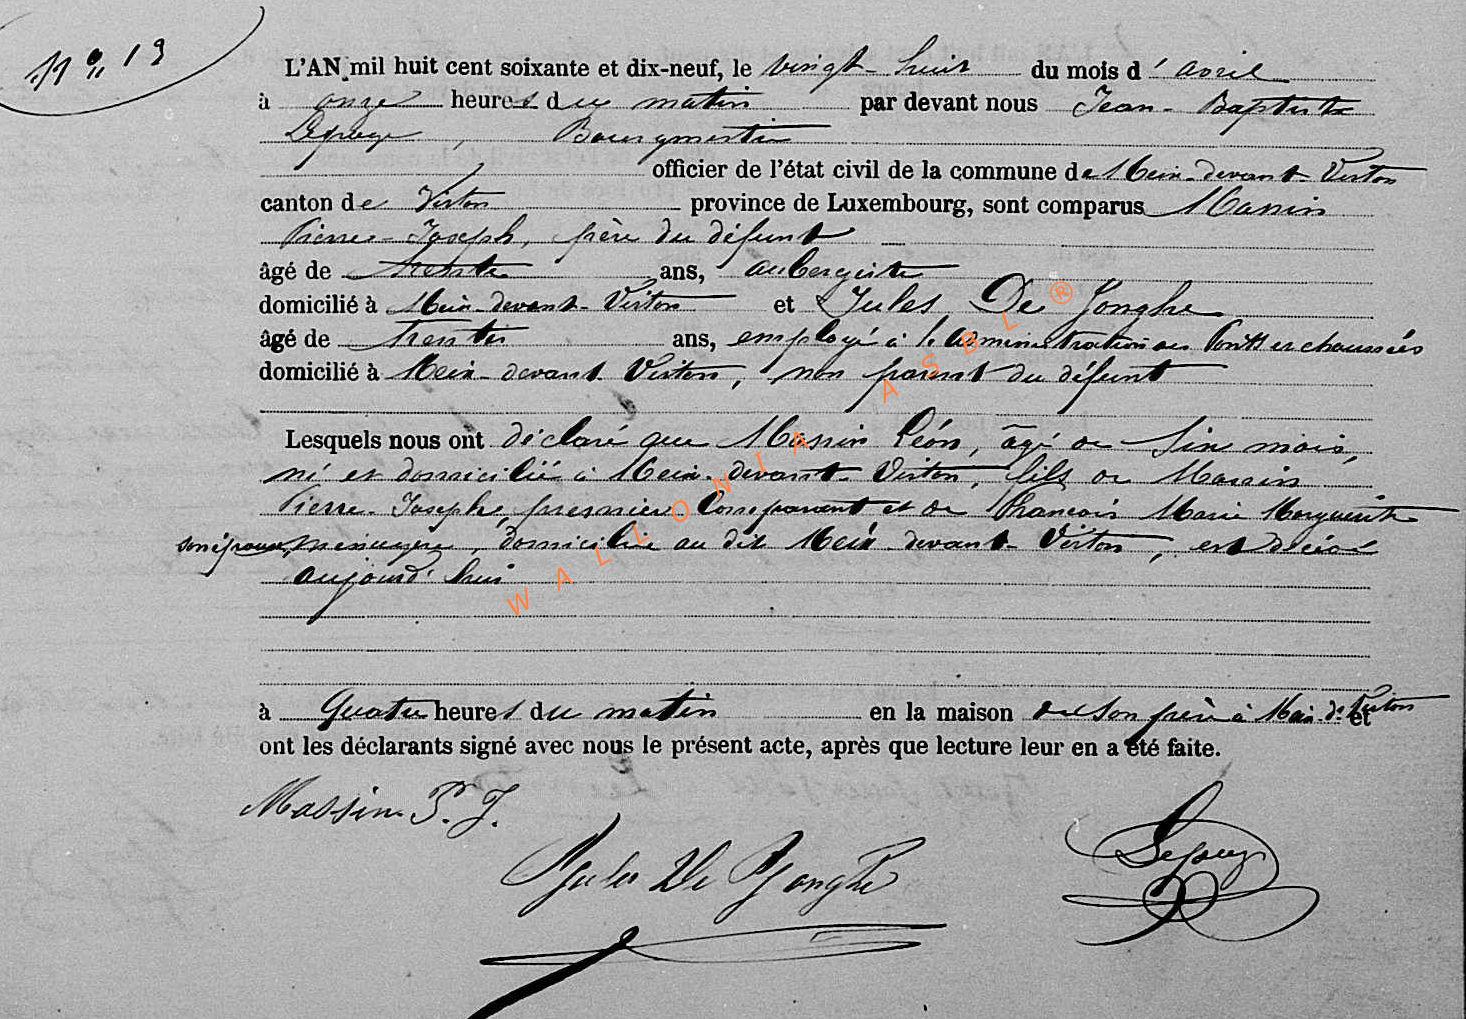 N° 13
L'AN mil huit cent soixante et dix-neuf, le vingt-huit du mois d'avril
à onze heures du matin par devant nous Jean-Baptiste
Bourgmestre
officier de l'état civil de la commune de Meix-devant-Virton
canton de Virton province de Luxembourg, sont comparus Massin
Pierre-Joseph, père du défunt
âgé de trente ans, aubergiste
domicilié à Meix-devant-Virton et Jules De Jonghe
âgé de trente ans, employé à l'administration des Ponts et chaussées
domicilié à Meix-devant-Virton, non parent du défunt
Lesquels nous ont déclaré que Massin Léon, âgé de six mois,
né et domicilié à Meix-devant-Virton, fils de Massin
Pierre-Joseph, premier Comparant et de François Marie Marguerite
son épouse, ménagère, domiciliée au dit Meix-devant-Virton, est décédé
aujourd'hui
à quatre heures du matin en la maison de son père à Meix-dt-Virton et
ont les déclarants signé avec nous le présent acte, après que lecture leur en a été faite.
Massin P. J.
Jules De Jonghe
WALLONIA ASBL ®